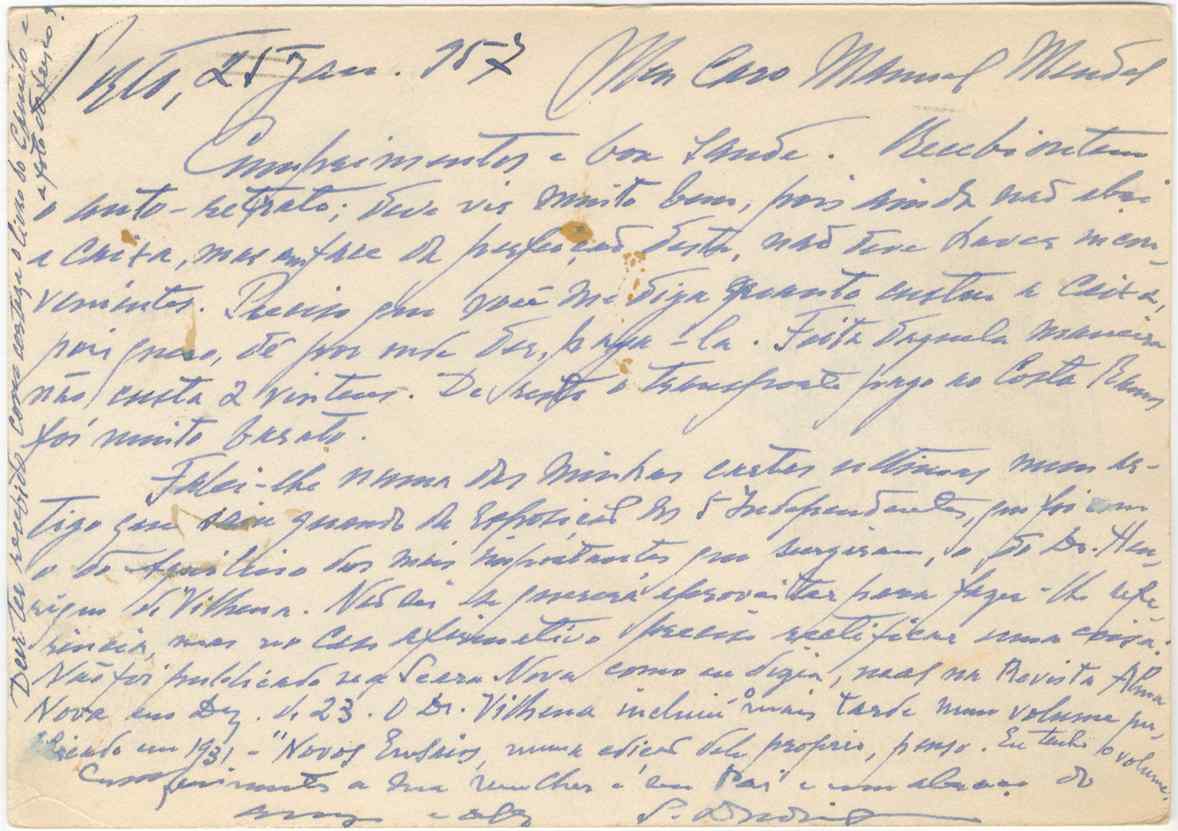 Porto, 25 Jan. 957 Meu Caro Manuel Mendes
Cumprimentos e boa saude. Recebi ontem
o auto-retrato; deve vir muito bem, pois ainda não abri
a caixa, mas em face da perfeição desta, não deve haver incon-
venientes. Preciso que você me diga quanto custou a caixa,
pois quero, dê por onde der, paga-la. Feita daquela maneira
não custa 2 vintens. De resto o transporte pago ao Costa
foi muito barato.
Falei-lhe numa das minhas cartas ultimas num ar-
tigo que saiu quando da Exposição dos 5 Independentes, que foi com
o do Aquilino dos mais importantes que surgiram, o do Dr. Hen-
rique de Vilhena. Não sei se quererá aproveitar para fazer-lhe refe-
rencia, mas no caso afirmativo preciso rectificar uma coisa:
Não foi publicado na Seara Nova como eu dizia, mas na Revista Alma
Nova em Dez. de 23. O Dr. Vilhena incluiu o mais tarde num volume pu-
blicado em 1931 - "Novos Ensaios, numa edição dele proprio, penso. Eu tenho o volume.
Cumprimentos a sua mulher e seu Pai e um abraço do
S.
Deve ter recebido como
o livro do
e